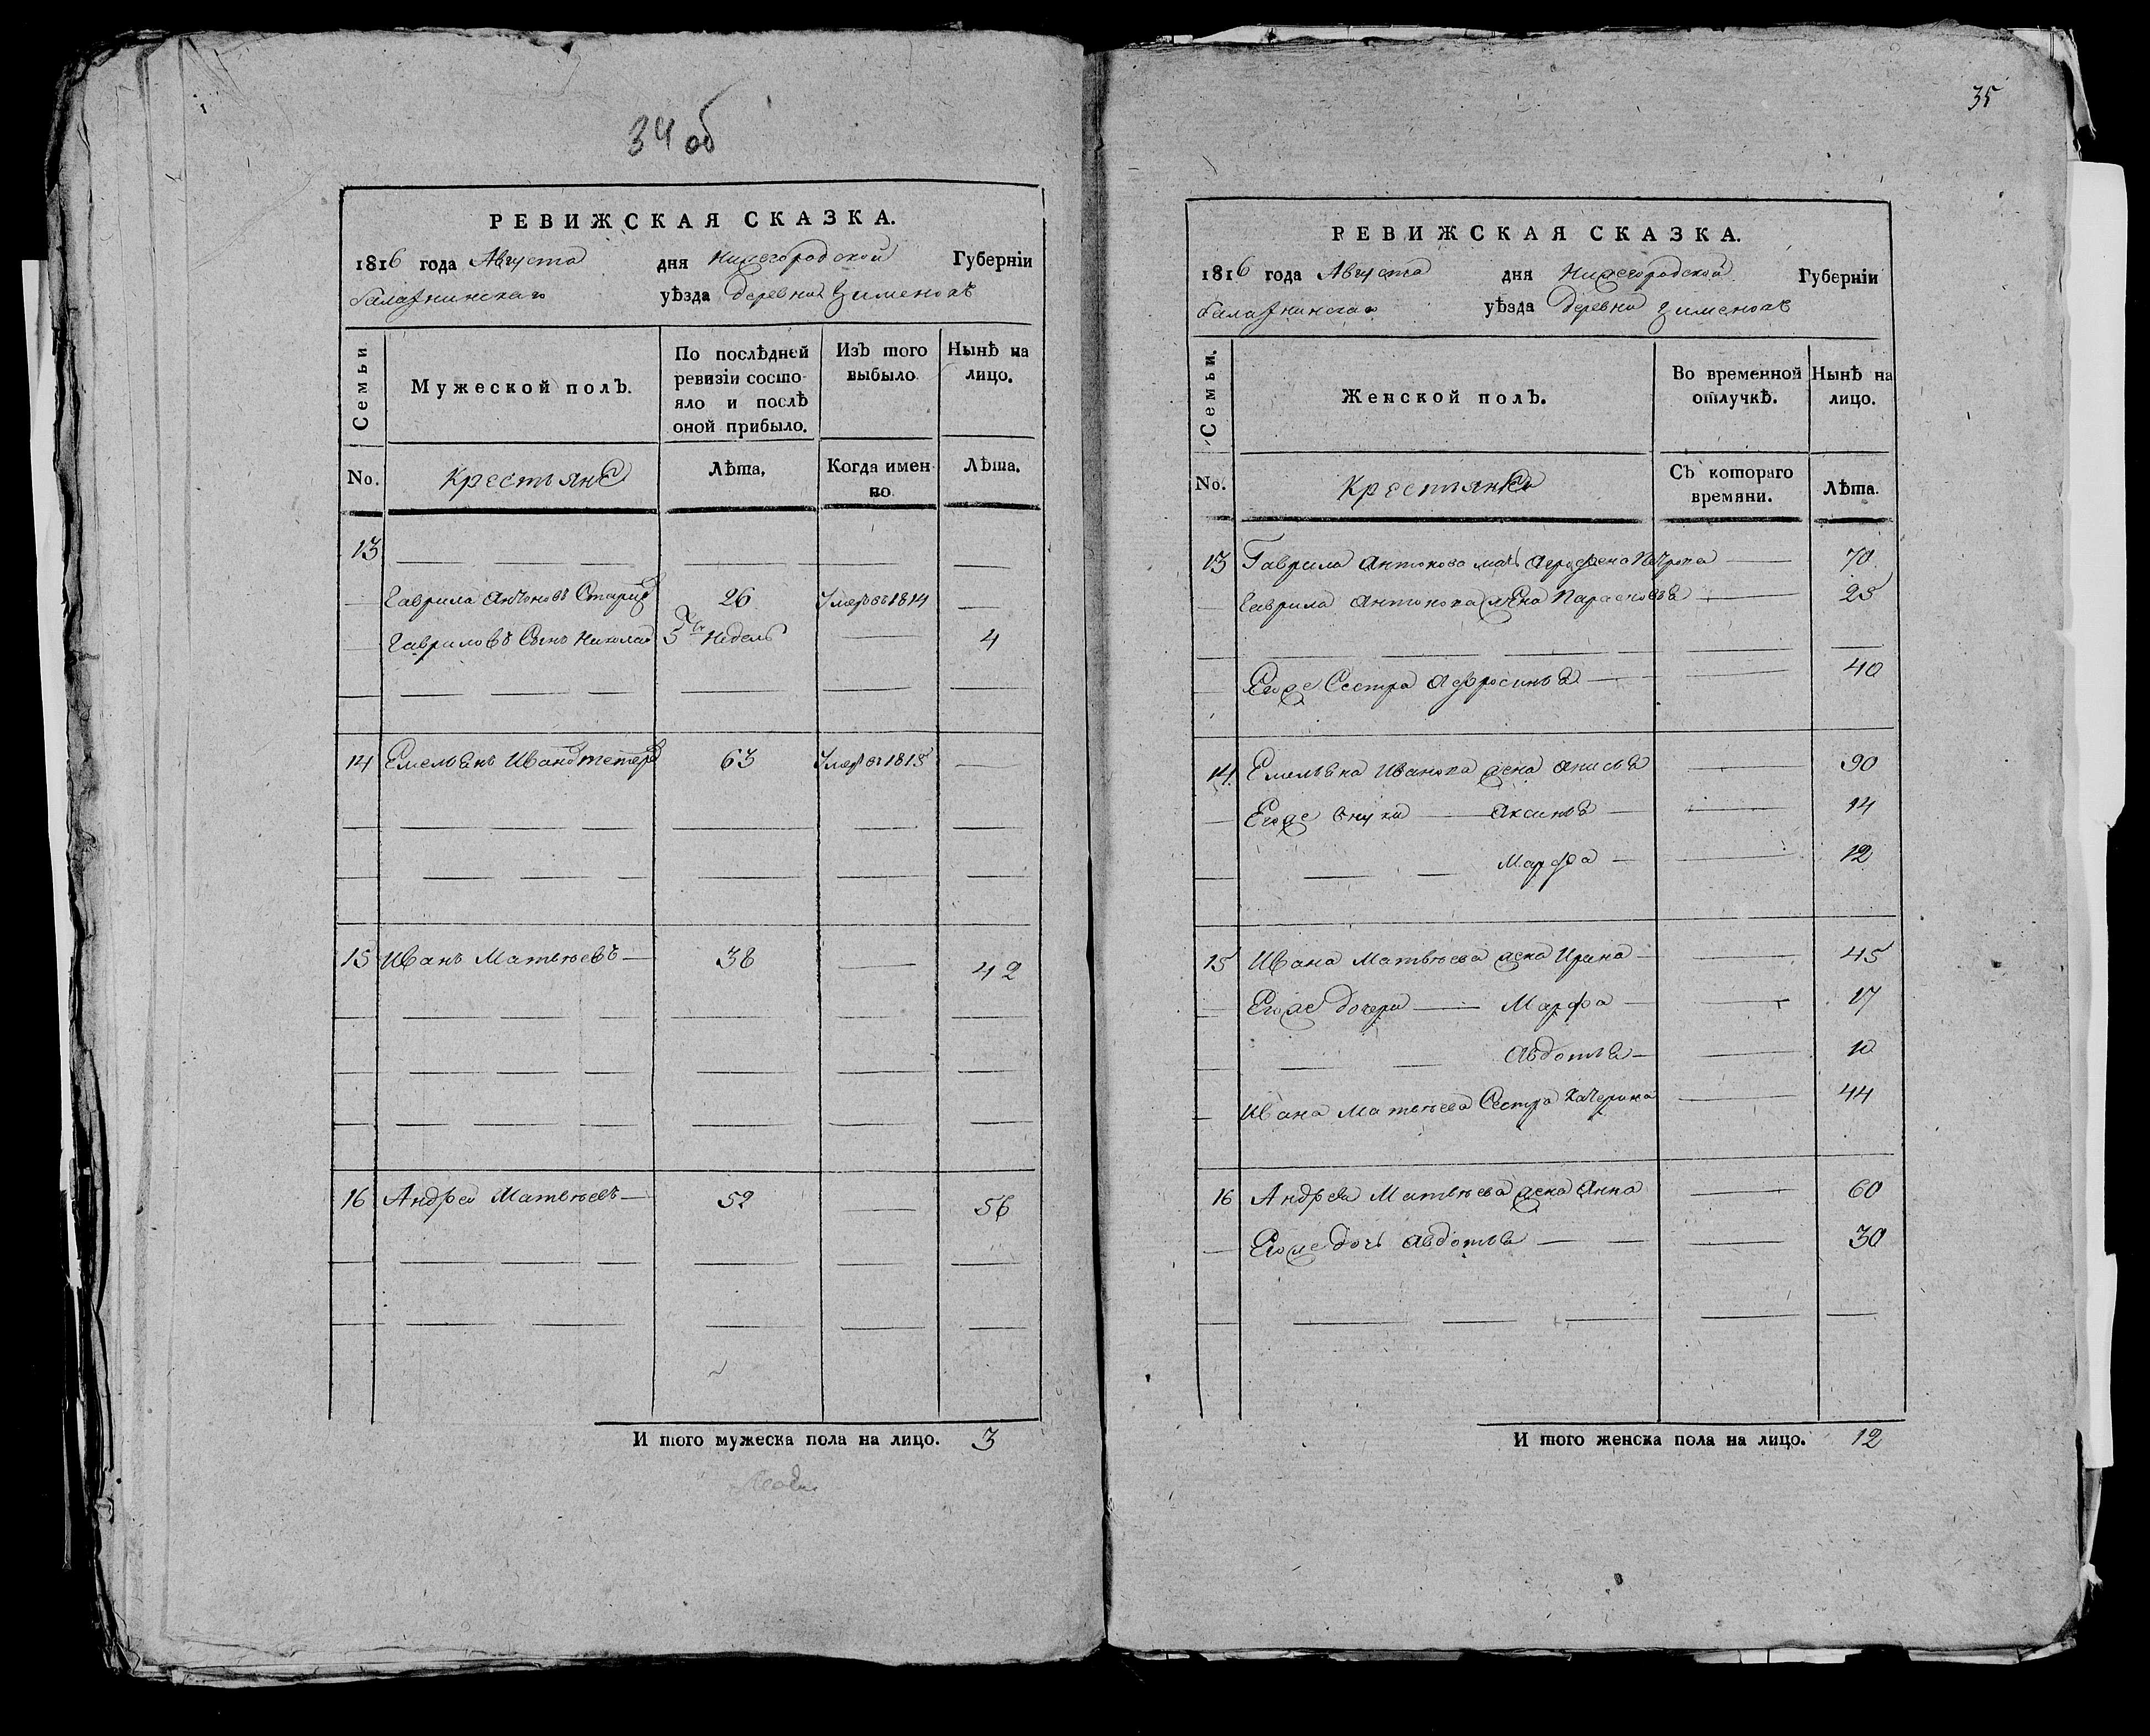 34 об
РЕВИЖСКАЯ СКАЗКА.
1816 года Августа дня Нижегородской Губерніи
Балахнинскаго уѣзда деревни Зименокъ
Семьи
Мужеской полъ.
По послѣдней ревизіи состояло и послѣ оной прибыло.
Изъ того выбыло.
Нынѣ на лицо.
No. Крестьяне Лѣта. Когда именно. Лѣта.
13
Гаврила Антоновъ 26 Умеръ въ 1814
Гавриловъ Сынъ Николай 5 Недель 4
14 Емельянъ Иванъ 63 Умеръ въ 1815
15 Иванъ Матвѣевъ 38 42
16 Андрей Матвѣевъ 52 56
И того мужеска пола на лицо. 3
35
РЕВИЖСКАЯ СКАЗКА.
1816 года Августа дня Нижегородской Губерніи
Балахнинскаго уѣзда Деревни Зименокъ
Семьи.
Женской полъ.
Во временной отлучкѣ.
Нынѣ на лицо.
No. Крестьянки Съ котораго времяни. Лѣта.
13 Гаврила Антонова мать Аграфена Петрова 70
Гаврила Антонова жена Парасковья 25
Егоже Сестра Афросинья 40
14 Емельяна Иванова жена Анисья 90
Егоже внуки Аксинья 14
Марфа 12
15 Ивана Матвѣева жена Ирина 45
Егоже дочери Марфа 17
Авдотья 10
Ивана Матвѣева Сестра Катерина 44
16 Андрея Матвѣева жена Анна 60
Егоже дочь Авдотья 30
И того женска пола на лицо. 12